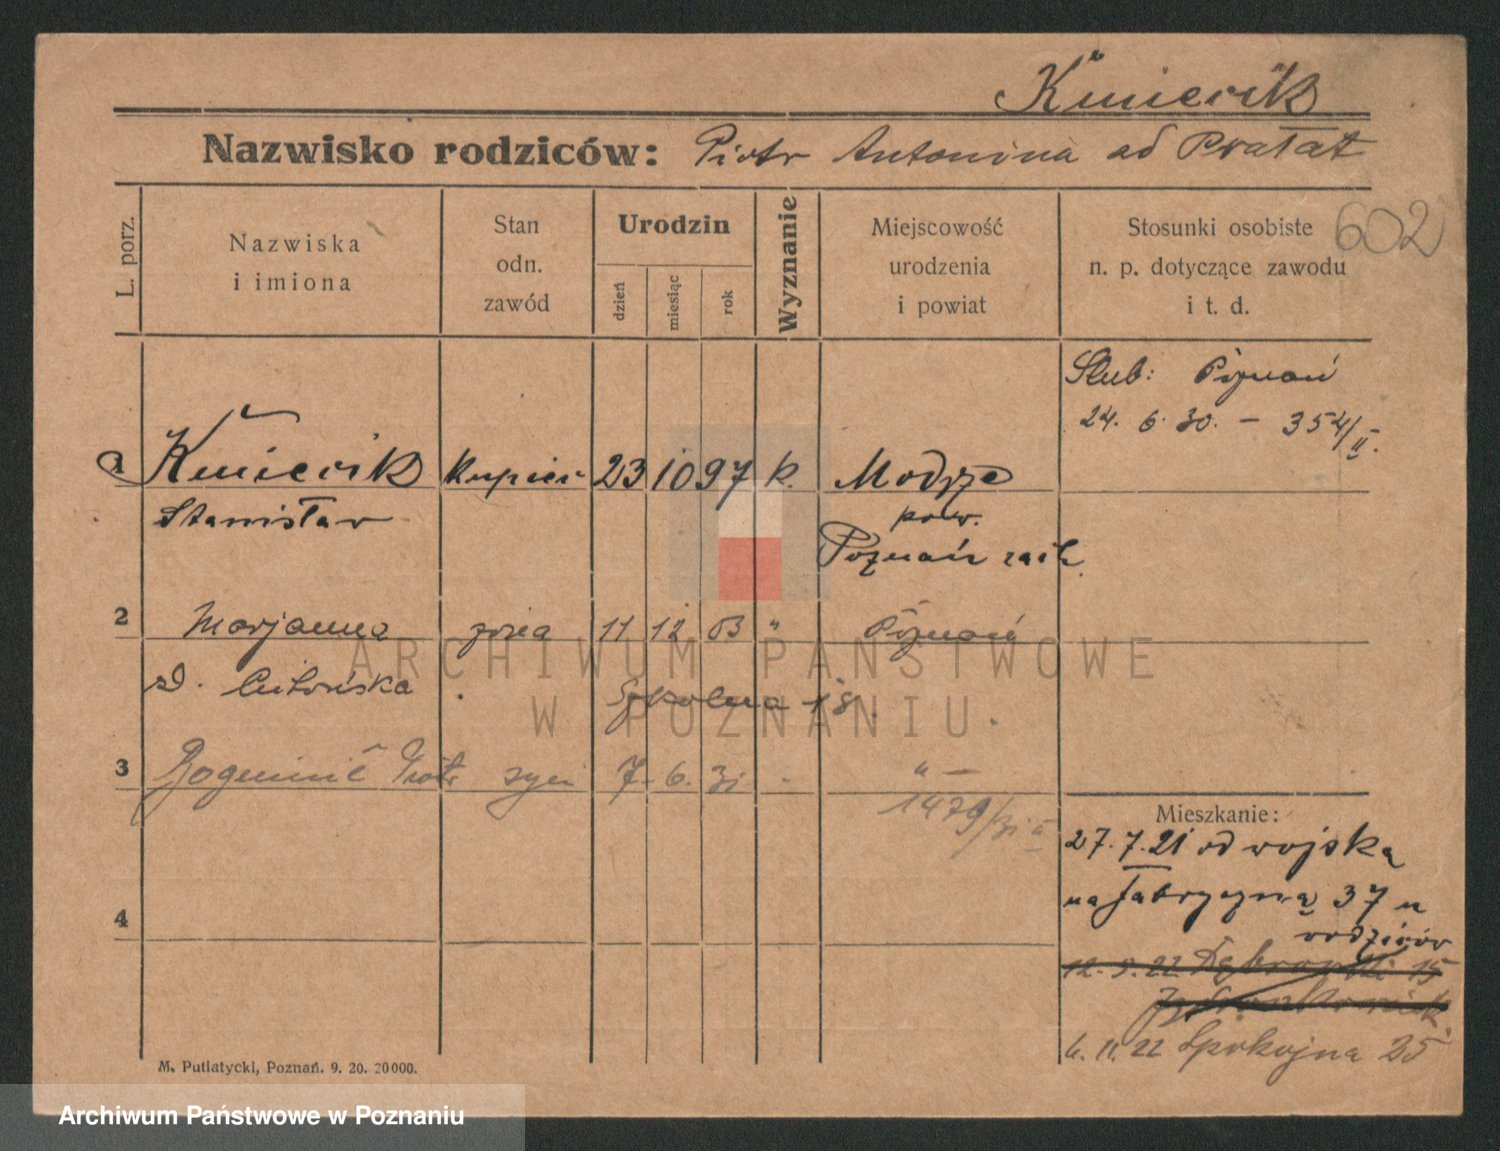 Kmiecik
Nazwisko rodziców: Piotr Antonina od Prałat
602
L. porz.
Nazwiska
i imiona
Stan
odn.
zawód
Urodzin
dzień
miesiąc
rok
Wyznanie
Miejscowość
urodzenia
i powiat
Stosunki osobiste
n. p. dotyczące zawodu
i t. d.
Ślub: Poznań
24. 6. 30. - 354/II.
1 Kmiecik kupiec 23 10 97 k. Modrze
Stanisław
pow.
Poznań zach.
2 Marjanna żona 11 12 03 " Poznań
d. Szkolna 18.
3 Bogumił Piotr syn 7. 6. 31 " "—
1479/31 II
4
Mieszkanie:
27.7.21 od wojska
na Fabryczną 37 u
rodziców
12.9.22 15
6.11.22 Spokojna 25
M. Putiatycki, Poznań. 9. 20. 20000.
ARCHIWUM PAŃSTWOWE
W POZNANIU
Archiwum Państwowe w Poznaniu